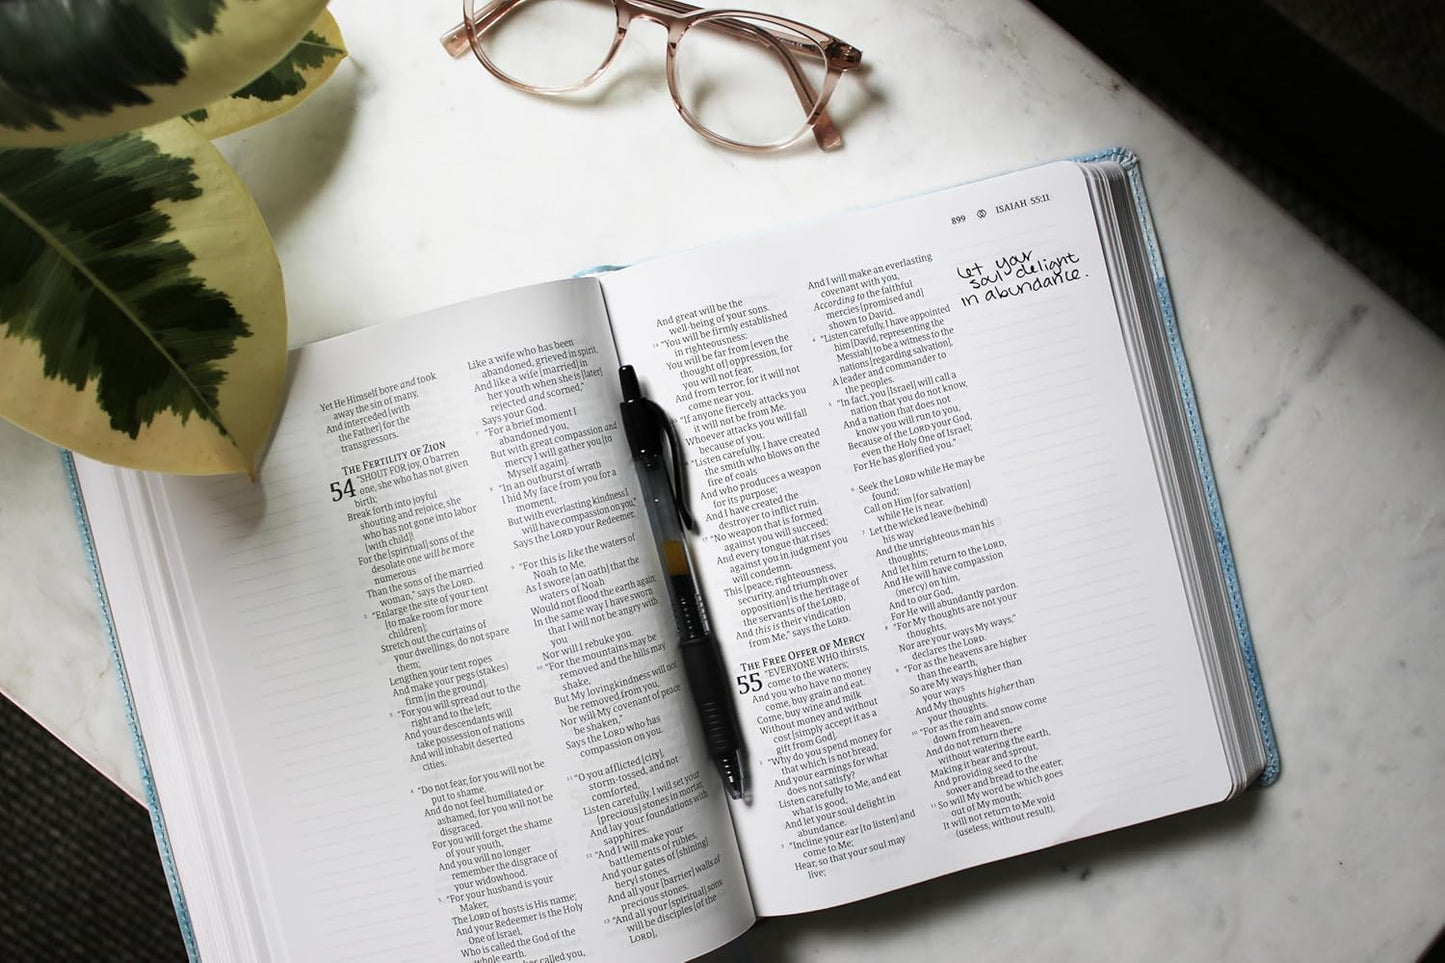 Yet He Himself bore and took
away the sin of many,
And interceded [with
the Father] for the
transgressors.
THE FERTILITY OF ZION
54 "SHOUT FOR joy, O barren
one, she who has not given
birth;
Break forth into joyful
shouting and rejoice, she
who has not gone into labor
[with child]!
For the [spiritual] sons of the
desolate one will be more
numerous
Than the sons of the married
woman," says the LORD.
2 "Enlarge the site of your tent
[to make room for more
children];
Stretch out the curtains of
your dwellings, do not spare
them;
Lengthen your tent ropes
And make your pegs (stakes)
firm [in the ground].
3 "For you will spread out to the
right and to the left;
And your descendants will
take possession of nations
And will inhabit deserted
cities.
4 "Do not fear, for you will not be
put to shame,
And do not feel humiliated or
ashamed, for you will not be
disgraced.
For you will forget the shame
of your youth,
And you will no longer
remember the disgrace of
your widowhood.
5 "For your husband is your
Maker,
The LORD of hosts is His name;
And your Redeemer is the Holy
One of Israel,
Who is called the God of the
whole earth.
called you,
Like a wife who has been
abandoned, grieved in spirit,
And like a wife [married] in
her youth when she is [later]
rejected and scorned,"
Says your God.
7 "For a brief moment I
abandoned you,
But with great compassion and
mercy I will gather you [to
Myself again].
8 "In an outburst of wrath
I hid My face from you for a
moment,
But with everlasting kindness I
will have compassion on you,"
Says the LORD your Redeemer.
9 "For this is like the waters of
Noah to Me,
As I swore [an oath] that the
waters of Noah
Would not flood the earth again,
In the same way I have sworn
that I will not be angry with
you
Nor will I rebuke you.
10 "For the mountains may be
removed and the hills may
shake,
But My lovingkindness will not
be removed from you,
Nor will My covenant of peace
be shaken,"
Says the LORD who has
compassion on you.
11 "O you afflicted [city],
storm-tossed, and not
comforted,
Listen carefully, I will set your
[precious] stones in mortar,
And lay your foundations with
sapphires.
12 "And I will make your
battlements of rubies,
And your gates of [shining]
beryl stones,
And all your [barrier] walls of
precious stones.
13 "And all your [spiritual] sons
will be disciples [of the
LORD],
899 ISAIAH 55:11
And great will be the
well-being of your sons.
14 "You will be firmly established
in righteousness:
You will be far from [even the
thought of] oppression, for
you will not fear,
And from terror, for it will not
come near you.
15 "If anyone fiercely attacks you
it will not be from Me.
Whoever attacks you will fall
because of you.
"Listen carefully, I have created
the smith who blows on the
fire of coals
And who produces a weapon
for its purpose;
And I have created the
destroyer to inflict ruin.
17 "No weapon that is formed
against you will succeed;
And every tongue that rises
against you in judgment you
will condemn.
This [peace, righteousness,
security, and triumph over
opposition] is the heritage of
the servants of the LORD,
And this is their vindication
from Me," says the LORD.
THE FREE OFFER OF MERCY
55 "EVERYONE WHO thirsts,
come to the waters;
And you who have no money
come, buy grain and eat.
Come, buy wine and milk
Without money and without
cost [simply accept it as a
gift from God].
2 "Why do you spend money for
that which is not bread,
And your earnings for what
does not satisfy?
Listen carefully to Me, and eat
what is good,
And let your soul delight in
abundance.
3 "Incline your ear [to listen] and
come to Me;
Hear, so that your soul may
live;
And I will make an everlasting
covenant with you,
According to the faithful
mercies [promised and]
shown to David.
4 "Listen carefully, I have appointed
him [David, representing the
Messiah] to be a witness to the
nations [regarding salvation],
A leader and commander to
the peoples.
5 "In fact, you [Israel] will call a
nation that you do not know,
And a nation that does not
know you will run to you,
Because of the LORD your God,
even the Holy One of Israel;
For He has glorified you."
6 Seek the LORD while He may be
found;
Call on Him [for salvation]
while He is near.
7 Let the wicked leave (behind)
his way
And the unrighteous man his
thoughts;
And let him return to the LORD,
And He will have compassion
(mercy) on him,
And to our God,
For He will abundantly pardon.
8 "For My thoughts are not your
thoughts,
Nor are your ways My ways,"
declares the LORD.
9 "For as the heavens are higher
than the earth,
So are My ways higher than
your ways
And My thoughts higher than
your thoughts.
10 "For as the rain and snow come
down from heaven,
And do not return there
without watering the earth,
Making it bear and sprout,
And providing seed to the
sower and bread to the eater,
11 So will My word be which goes
out of My mouth;
It will not return to Me void
(useless, without result),
let your
soul delight
in abundance.